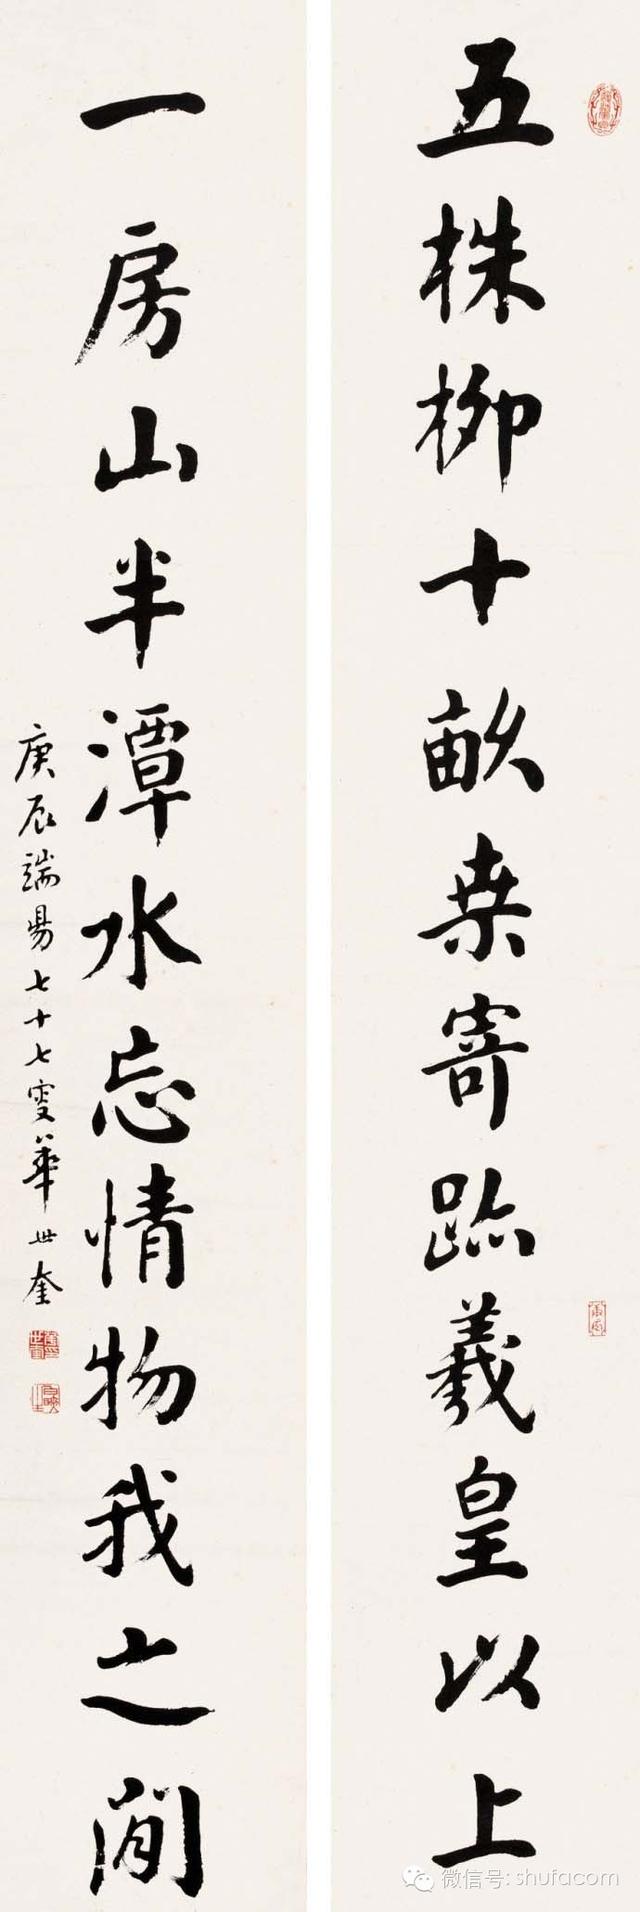 五株柳十畝桒寄跡羲皇以上
一房山半潭水忘情物我之間
庚辰端昜七十七叟華世奎
微信号: shufacom